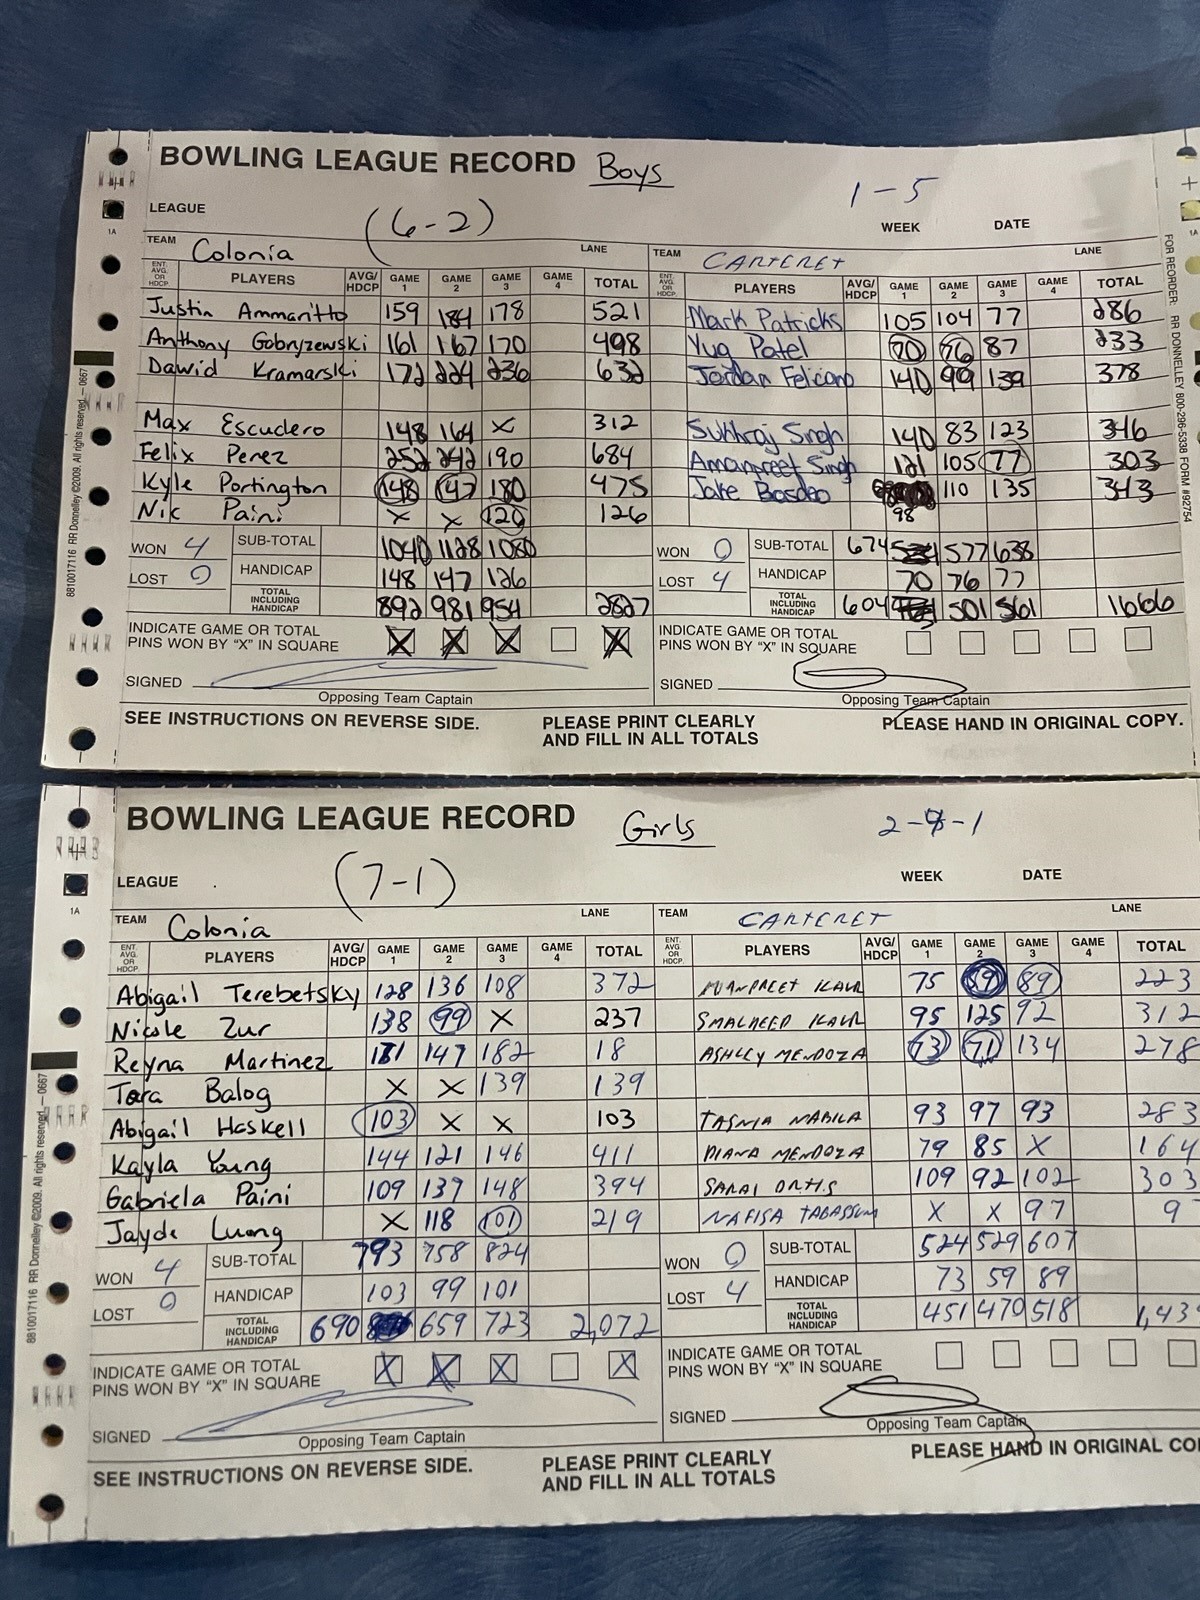 BOWLING LEAGUE RECORD Boys
1-5
LEAGUE (6-2) WEEK DATE
TEAM Colonia LANE TEAM CARTERET LANE
ENT. AVG. OR HDCP PLAYERS AVG/HDCP GAME 1 GAME 2 GAME 3 GAME 4 TOTAL ENT. AVG. OR HDCP. PLAYERS AVG/HDCP GAME 1 GAME 2 GAME 3 GAME 4 TOTAL
Justin Ammaritto 159 184 178 521 Mark Patricks 105 104 77 286
Anthony Gobryzewski 161 167 170 498 Yug Patel 70 76 87 233
Dawid Kramarski 172 224 236 632 Jordan Feliciano 140 99 139 378
Max Escudero 148 164 X 312 Sukhraj Singh 140 83 123 346
Felix Perez 252 242 190 684 Amanpreet Singh 121 105 77 303
Kyle Portington 148 147 180 475 Jake Basdeo 110 135 343
Nik Paini X X 126 126 98
WON 4 SUB-TOTAL 1040 1128 1080 WON 0 SUB-TOTAL 674 577 638
LOST 0 HANDICAP 148 147 126 LOST 4 HANDICAP 70 76 77
TOTAL INCLUDING HANDICAP 892 981 954 2827 TOTAL INCLUDING HANDICAP 604 501 561 1666
INDICATE GAME OR TOTAL PINS WON BY "X" IN SQUARE X X X X INDICATE GAME OR TOTAL PINS WON BY "X" IN SQUARE
SIGNED SIGNED
Opposing Team Captain Opposing Team Captain
SEE INSTRUCTIONS ON REVERSE SIDE. PLEASE PRINT CLEARLY AND FILL IN ALL TOTALS PLEASE HAND IN ORIGINAL COPY.
8810017116 RR Donnelley ©2009. All rights reserved. — 0667
FOR REORDER: RR DONNELLEY 800-296-5338 FORM #92754
1A
1A
BOWLING LEAGUE RECORD Girls
LEAGUE (7-1) WEEK DATE
TEAM Colonia LANE TEAM CARTERET LANE
ENT. AVG. OR HDCP. PLAYERS AVG/HDCP GAME 1 GAME 2 GAME 3 GAME 4 TOTAL ENT. AVG. OR HDCP. PLAYERS AVG/HDCP GAME 1 GAME 2 GAME 3 GAME 4 TOTAL
Abigail Terebetsky 128 136 108 372 KAUR 75 59 89 223
Nicole Zur 138 99 X 237 KAUR 95 125 92 312
Reyna Martinez 147 182 18 ASHLEY MENDOZA 73 71 134 278
Tara Balog X X 139 139
Abigail Haskell 103 X X 103 TASNIA NABILA 93 97 93 283
Kayla Young 144 121 146 411 DIANA MENDOZA 79 85 X 164
Gabriela Paini 109 137 148 394 SARAI 109 92 102 303
Jayde Luong X 118 101 219 NAFISA TABASSUM X X 97 9
WON 4 SUB-TOTAL 793 758 824 WON 0 SUB-TOTAL 524 529 607
LOST 0 HANDICAP 103 99 101 LOST 4 HANDICAP 73 59 89
TOTAL INCLUDING HANDICAP 690 659 723 2,072 TOTAL INCLUDING HANDICAP 451 470 518 1,439
INDICATE GAME OR TOTAL PINS WON BY "X" IN SQUARE X X X X INDICATE GAME OR TOTAL PINS WON BY "X" IN SQUARE
SIGNED SIGNED
Opposing Team Captain Opposing Team Captain
SEE INSTRUCTIONS ON REVERSE SIDE. PLEASE PRINT CLEARLY AND FILL IN ALL TOTALS PLEASE HAND IN ORIGINAL CO
8810017116 RR Donnelley ©2009. All rights reserved. — 0667
1A